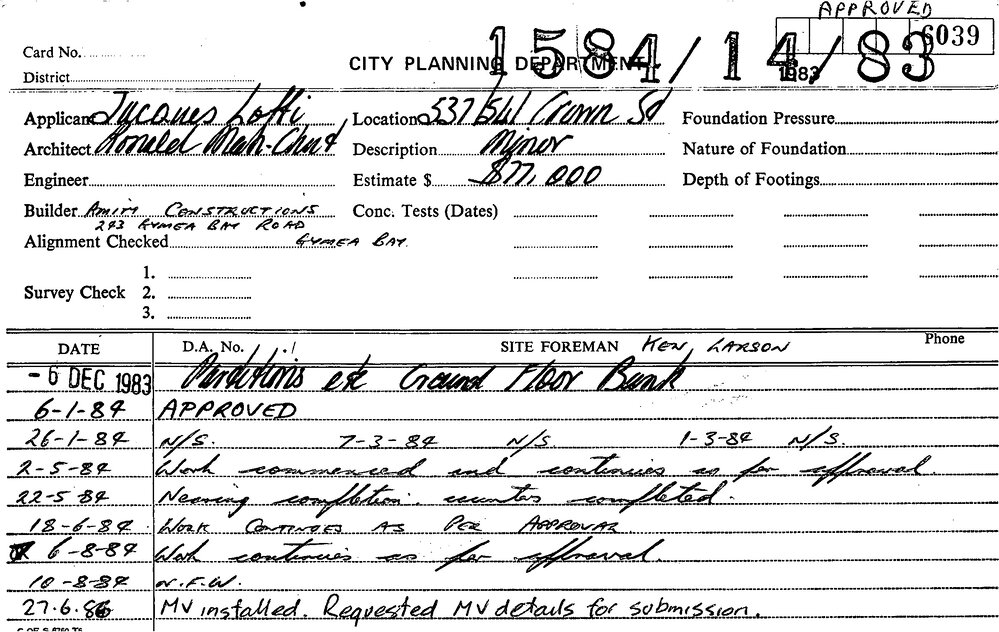 APPROVED
6039
1584/14/83
1983
Card No.
CITY PLANNING DEPARTMENT
District
Applicant Jacques Lofti Location 537/541 Crown St Foundation Pressure
Architect Ronald Mah-Chut Description Minor Nature of Foundation
Engineer Estimate $ $77,000 Depth of Footings
Builder AMITY CONSTRUCTIONS Conc. Tests (Dates)
293 GYMEA BAY ROAD
Alignment Checked GYMEA BAY.
1.
Survey Check 2.
3.
DATE D.A. No. / SITE FOREMAN KEN, LARSON Phone
- 6 DEC 1983 Partitions etc Ground Floor Bank
6-1-84 APPROVED
26-1-84 N/S. 7-3-84 N/S 1-3-84 N/S.
2-5-84 Work commenced and continues as per approval.
22-5-84 Nearing completion. counters completed.
18-6-84 WORK CONTINUES AS PER APPROVAL
6-8-84 Work continues as per approval.
10-8-84 N.F.W.
27.6.86 MV installed. Requested MV details for submission.